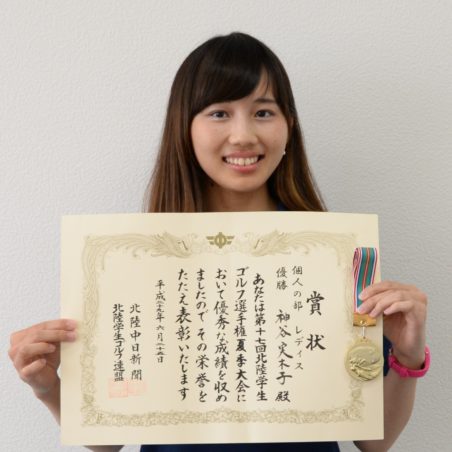 賞状
個人の部 レディス
優勝 神谷実木子 殿
あなたは第十七回北陸学生
ゴルフ選手権夏季大会に
おいて優秀な成績を収め
ましたので その栄誉を
たたえ表彰いたします
平成二十九年六月二十五日
北陸中日新聞
北陸学生ゴルフ連盟